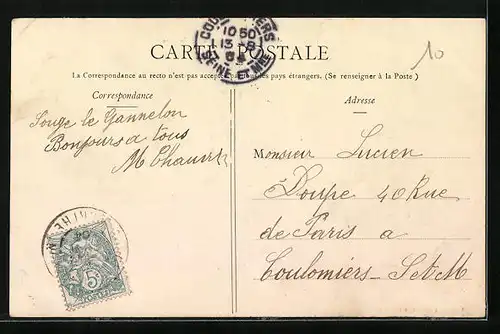 CARTE POSTALE
La Correspondance au recto n'est pas acceptée par tous les pays étrangers. (Se renseigner à la Poste)
Correspondance
Adresse
10
COULOMMIERS
10 50
13 -8
SEINE ET MNE
Souge le Gannelon
Bonjours a tous
M
Monsieur Lucien
Doupe 40 Rue
de Paris a
Coulomiers S et M
5
POSTES